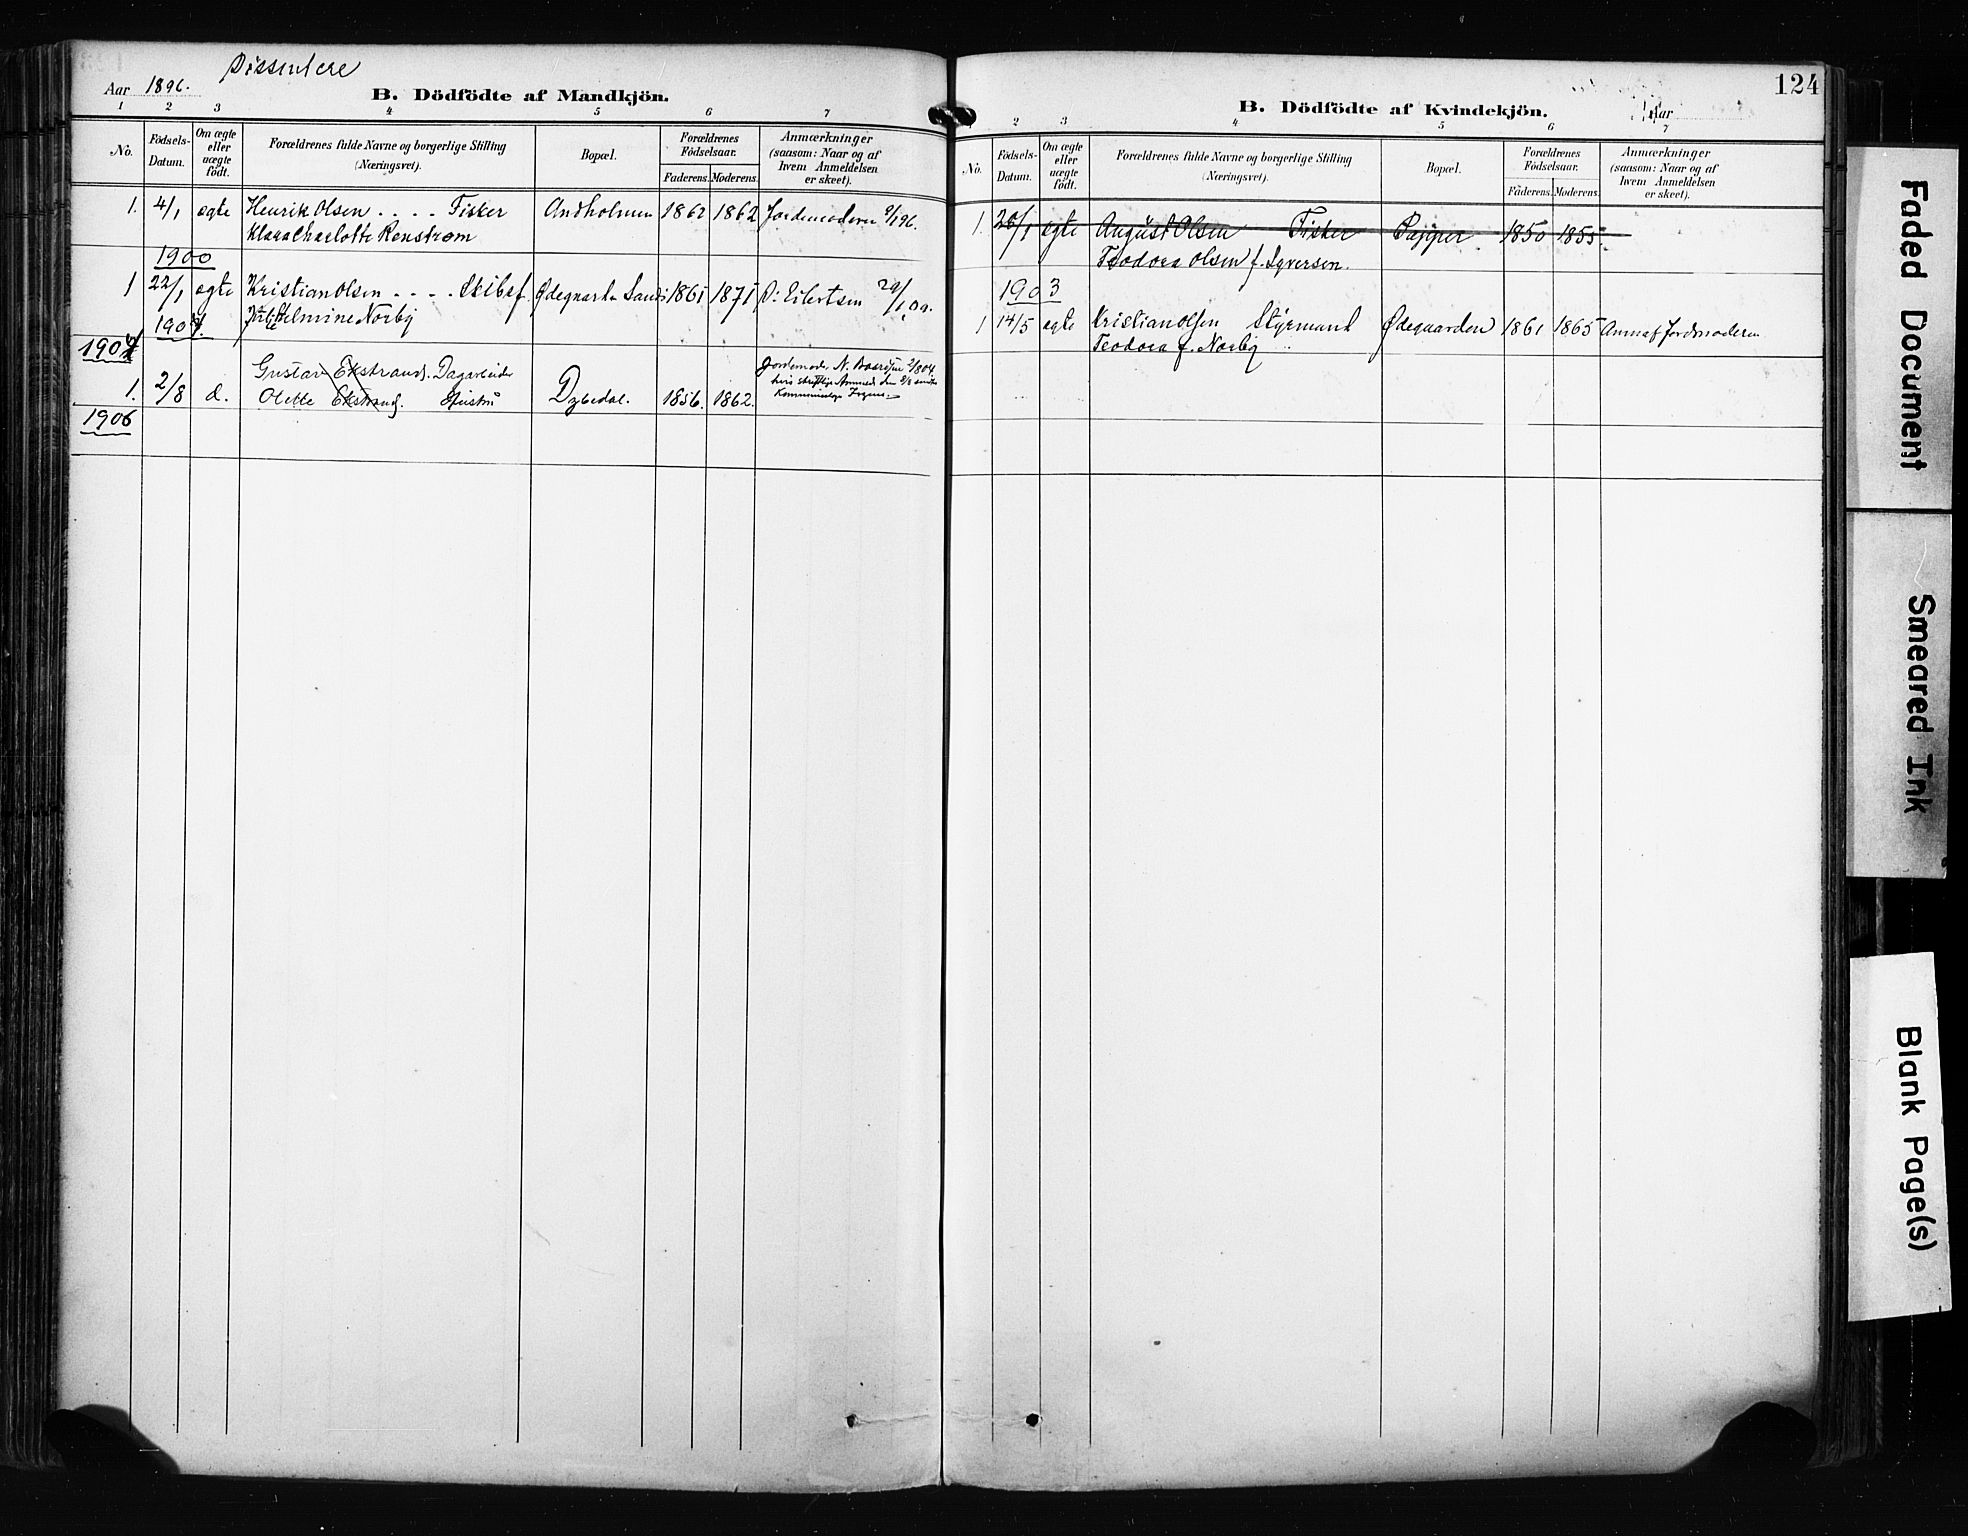 Dissentere
Aar 1896.
B. Dödfödte af Mandkjön.
1 2 3 4 5 6 7
No.
Födsels-Datum.
Om ægte eller uægte födt.
Forældrenes fulde Navne og borgerlige Stilling (Næringsvei).
Bopæl.
Forældrenes Födselsaar.
Faderens. Moderens.
Anmærkninger (saasom: Naar og af hvem Anmeldelsen er skeet).
1. 4/1 ægte Henrik Olsen . . . . Fisker Andholmen 1862 1862 Jordemoderen 9/1 96.
Klara Charlotte Renström
1900
1 22/1 ægte Kristian Olsen . . . . Skibsf. Ødegaarden 1861 1871 Eilertsen 29/1 00.
Norby
1904
1904
Gustav Ekstrand. Dagarbeider Jordemoder N. 2/8 04.
1. 2/8 d. Olette Ekstrand. Hustru Dybedal. 1856. 1862.
1906
124
B. Dödfödte af Kvindekjön.
Aar
2 3 4 5 6 7
No.
Födsels-Datum.
Om ægte eller uægte födt.
Forældrenes fulde Navne og borgerlige Stilling (Næringsvei).
Bopæl.
Forældrenes Födselsaar.
Faderens. Moderens.
Anmærkninger (saasom: Naar og af hvem Anmeldelsen er skeet).
1. 20/1 ægte August Olsen Fisker Papper 1850 1855
Teodora Olsen f. Syversen.
1903
1 14/5 ægte Kristian Olsen Styrmand Ødegaarden 1861 1865 Anm af Jordmoderen
Teodora f. Norby
Faded Document
Smeared Ink
Blank Page(s)